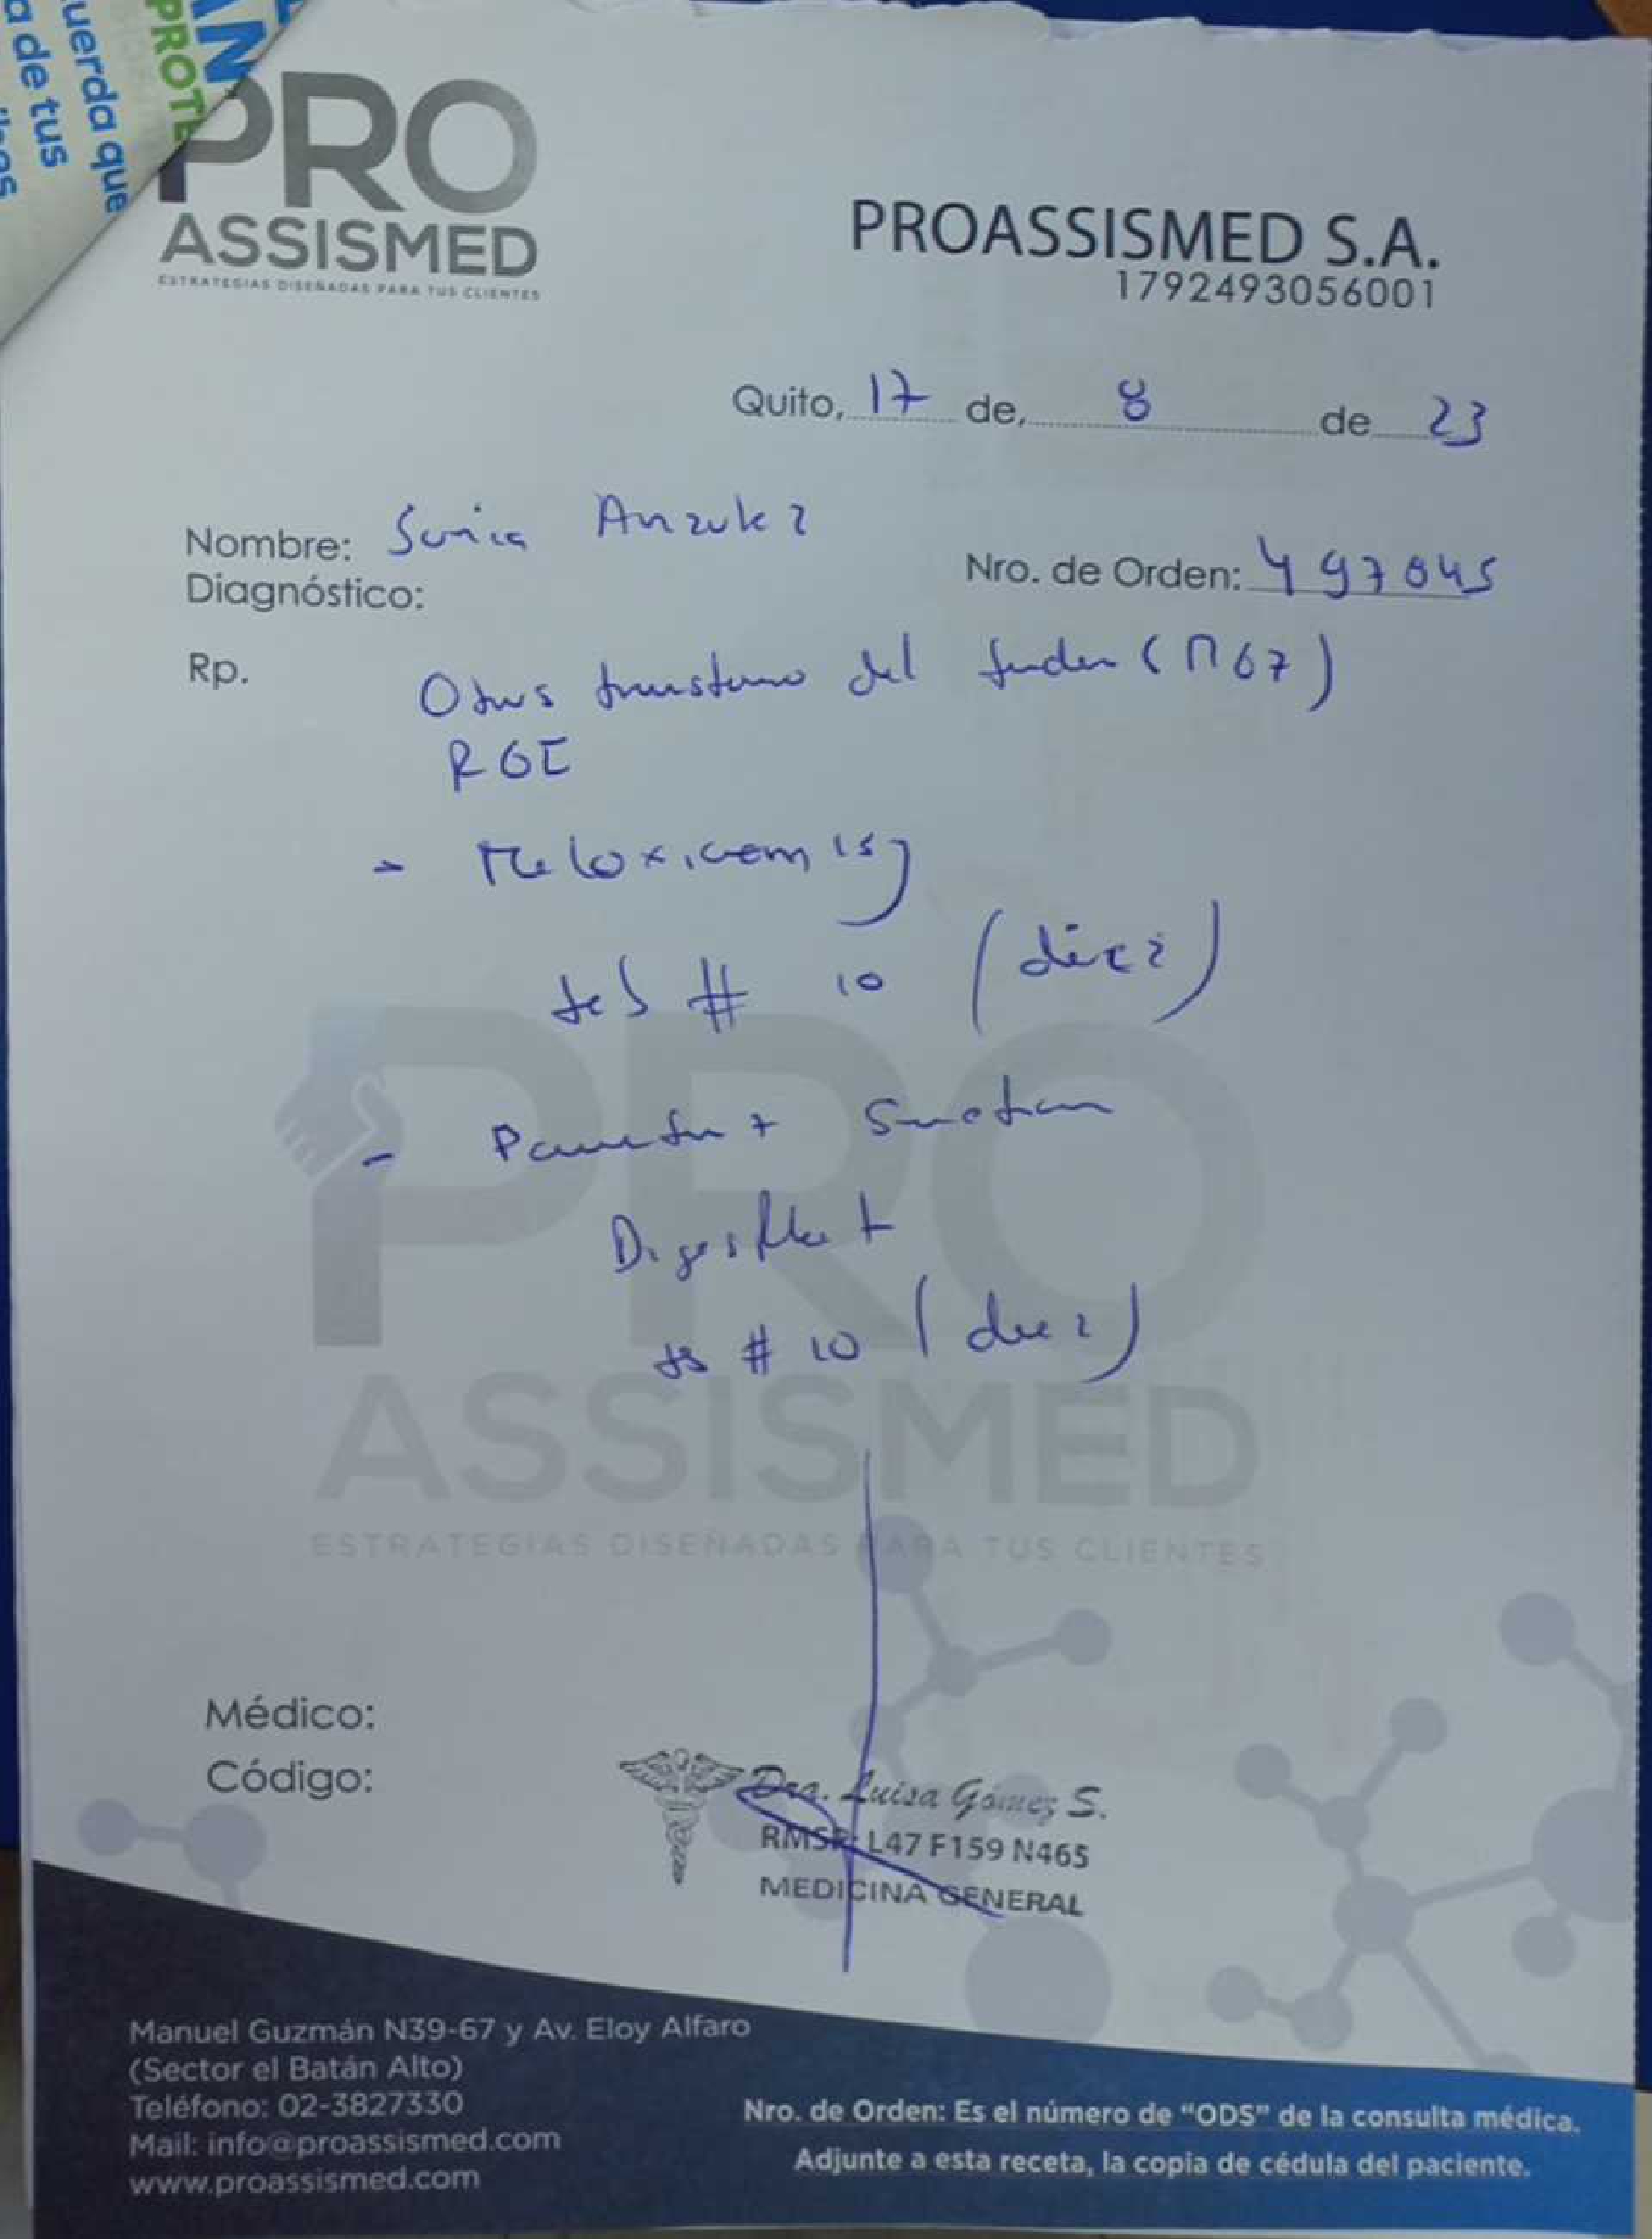 a de tus
uerda que
PROTE
AN
PRO
ASSISMED
ESTRATEGIAS DISEÑADAS PARA TUS CLIENTES
PROASSISMED S.A.
1792493056001
Quito, 17 de, 8 de 23
Nombre: Sonia
Diagnóstico:
Nro. de Orden: 497045
Rp.
Otros del (M67)
RGE
- Meloxicam 15
tab # 10 (diez)
-
# 10 (diez)
PRO
ASSISMED
ESTRATEGIAS DISEÑADAS PARA TUS CLIENTES
Médico:
Código:
Dra. Luisa Gómez S.
RMSP: L47 F159 N465
MEDICINA GENERAL
Manuel Guzmán N39-67 y Av. Eloy Alfaro
(Sector el Batán Alto)
Teléfono: 02-3827330
Mail: info@proassismed.com
www.proassismed.com
Nro. de Orden: Es el número de “ODS” de la consulta médica.
Adjunte a esta receta, la copia de cédula del paciente.